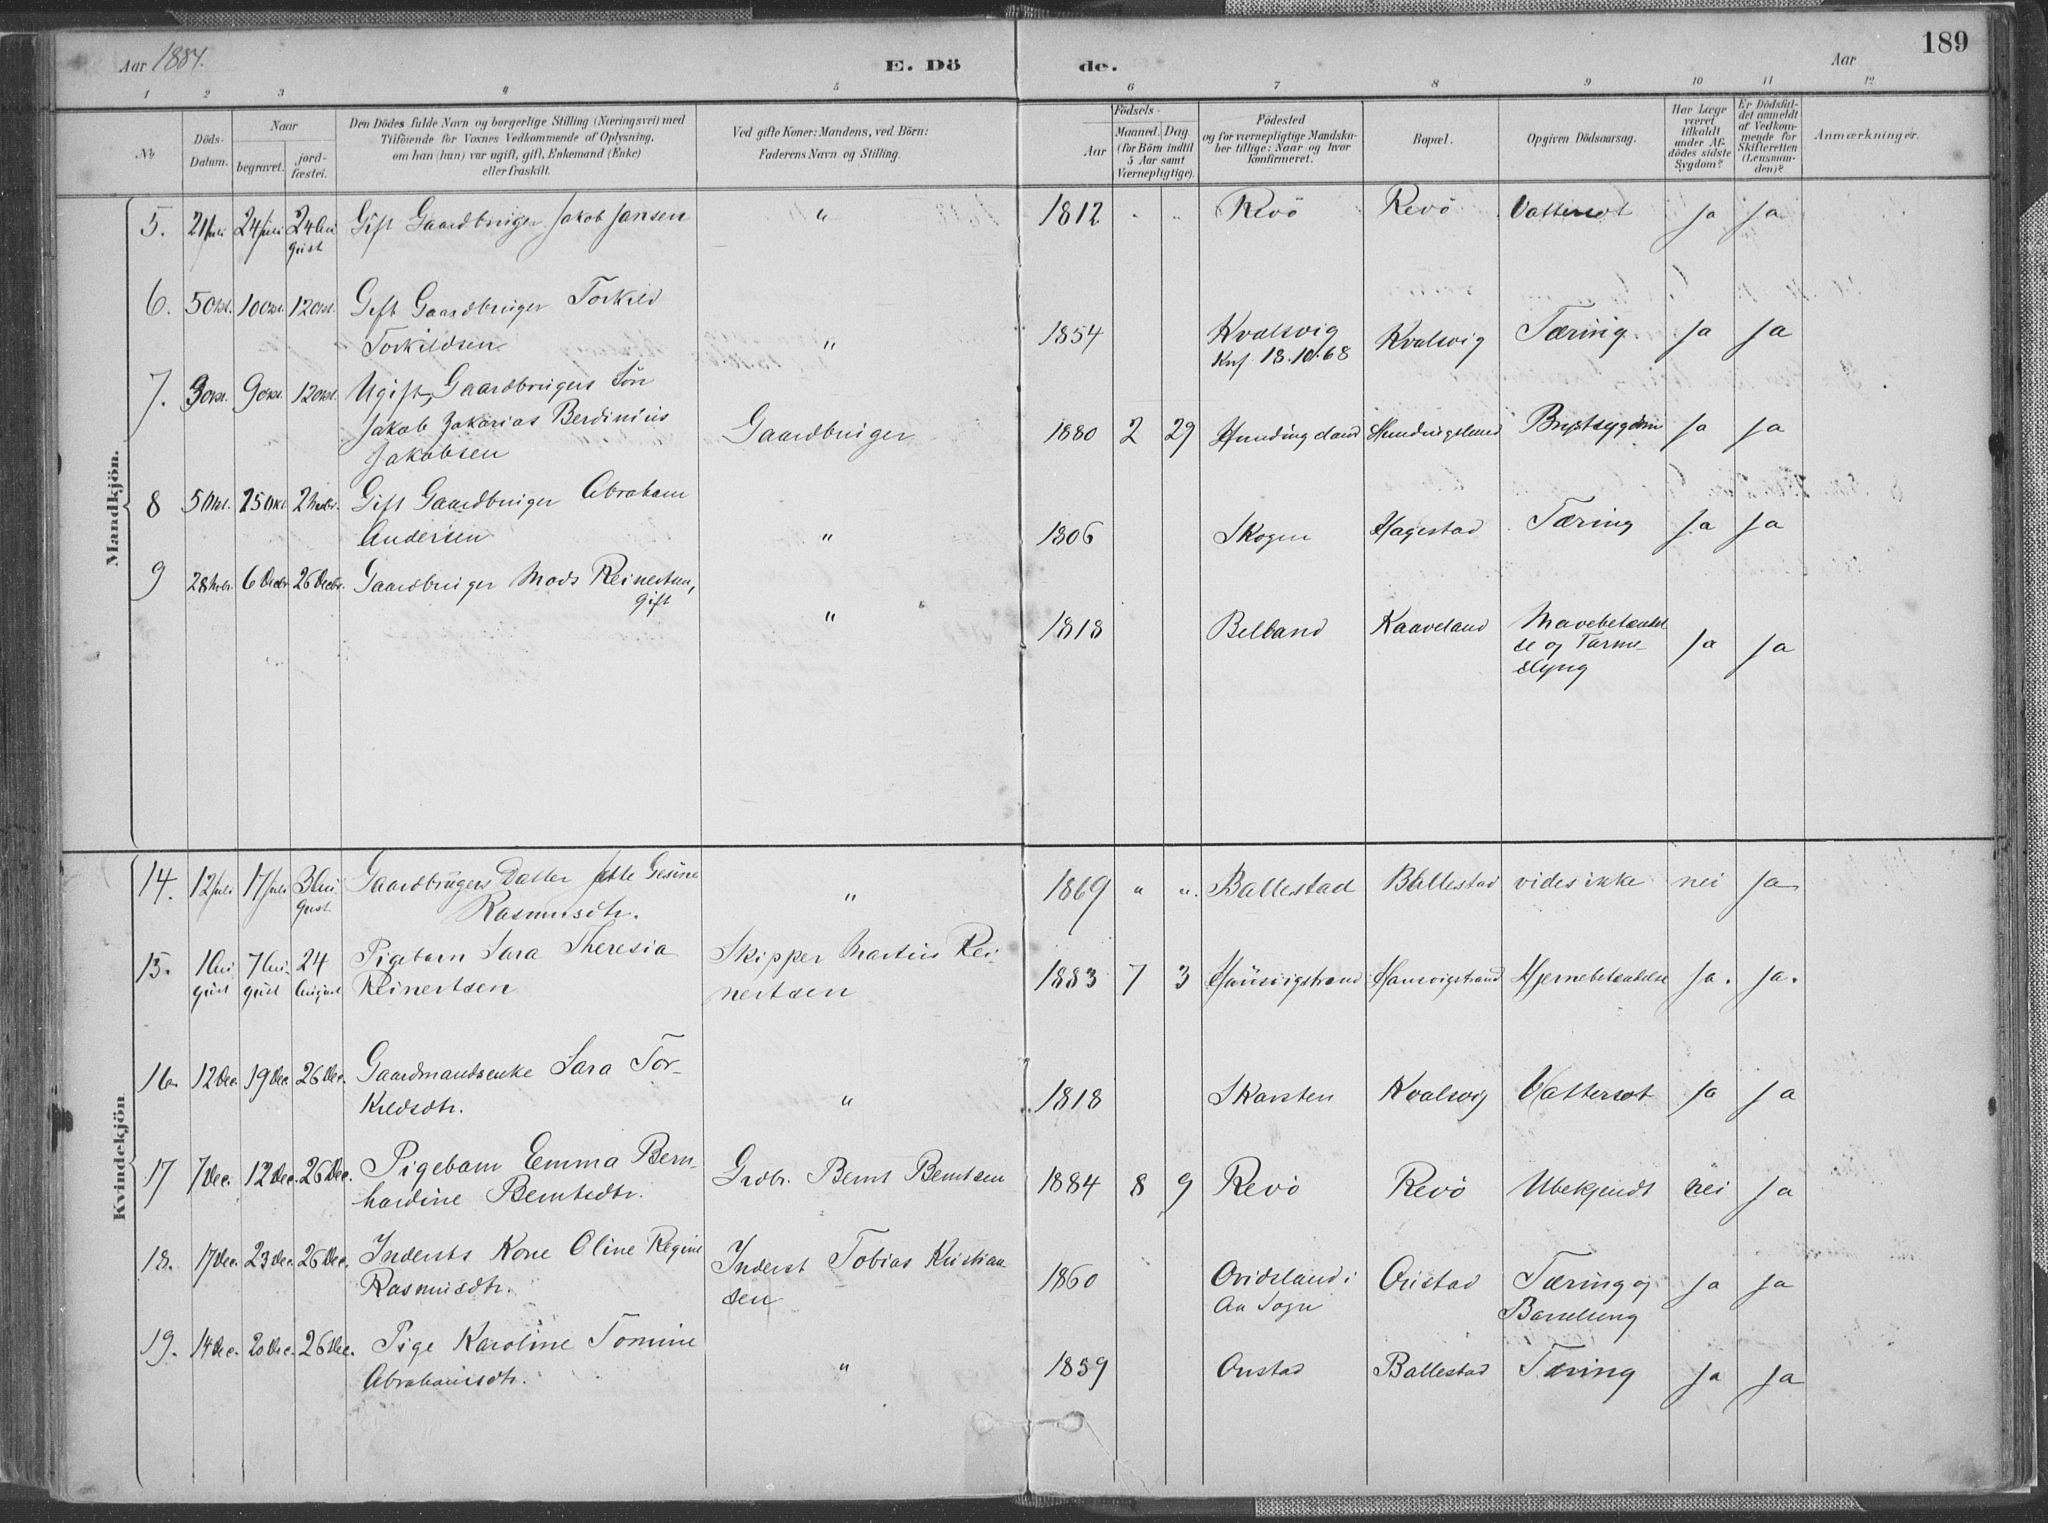 Aar 1884.
E. Dö
de.
Aar
189
1 2 3 4 5 6 7 8 9 10 11 12
No
Döds-Datum.
Naar
begravet.
jord-fæstet.
Den Dödes fulde Navn og borgerlige Stilling (Næringsvei) med
Tilföiende for Voxnes Vedkommende af Oplysning,
om han (hun) var ugift, gift, Enkemand (Enke)
eller fraskilt.
Ved gifte Koner: Mandens, ved Börn:
Faderens Navn og Stilling.
Födsels-
Aar
Maaned. Dag
(for Börn indtil
5 Aar samt
Værnepligtige).
Födested
og for værnepligtige Mandska-
ber tillige: Naar og hvor
konfirmeret.
Bopæl.
Opgiven Dödsaarsag.
Har Læge
været
tilkaldt
under Af-
dödes sidste
Sygdom?
Er Dödsfal-
det anmeldt
af Vedkom-
mende for
Skifteretten
(Lensman-
den)?
Anmærkninger.
Mandkjön.
5. 21 Juli 24 Juli 24 Au Gift Gaardbruger Jakob Jansen " 1812 " " Revö Revö Vattersot Ja Ja
gust
6. 5 Okt. 10 Okt. 12 Okt. Gift Gaardbruger Torkild
Torkildsen " 1854 Kvalsvig Kvalsvig Tæring. Ja Ja
Knf. 18.10.68
7. 3 Okt. 9 Okt. 12 Okt. Ugift, Gaardbrugers Sön
Jakob Zakarias Berdinius Gaardbruger 1880 2 29 Hundingsland Hundingsland Brystsygdom Ja Ja
Jakobsen
8 5 Okt. 25 Okt. 2 Novbr. Gift Gaardbruger Abraham
Andersen " 1806 Skogen Hagestad Tæring Ja Ja
9 28 Novbr. 6 Decbr 26 Decbr. Gaardbruger Mads Reinertsen,
gift " 1818 Belland Kaaveland Mavebetændel
se og Tarme- Ja Ja
slyng
Kvindekjön
14. 12 Juli 17 Juli 3 Au Gaardbrugers Datter Jette Gesine
gust Rasmusdtr. " 1869 " ". Ballestad Ballestad vides ikke nei Ja
15. 1 Au 7 Au- 24 Pigebarn Sara Theresia Skipper Martin Rei-
gust gust August Reinertsen nertsen 1883 7 3 Hausvigstrand Hausvigstrand Hjernebetændelse Ja. Ja.
16. 12 Dec. 19 Dec. 26 Dec. Gaardmandsenke Sara Tor-
kildsdtr. " 1818 Skarsten Kvalsvig Vattersot Ja Ja
17 7 Dec. 12 Dec. 26 Dec. Pigebarn Emma Bern-
hardine Berntsdtr. Grdbr. Bernt Berntsen 1884 8 9 Revö Revö Ubekjendt nei Ja
18. 17 Dec. 23 Dec. 26 Dec. Indersts Kone Oline Regine Inderst Tobias Kristian
Rasmusdtr. sen 1860 Ovidsland i Oustad Tæring og Ja Ja
Aa Sogn Barselseng
19. 14 Dec. 20 Dec. 26 Dec. Pige Karoline Tomine
Abrahamsdtr. " 1859 Oustad Ballestad Tæring Ja Ja